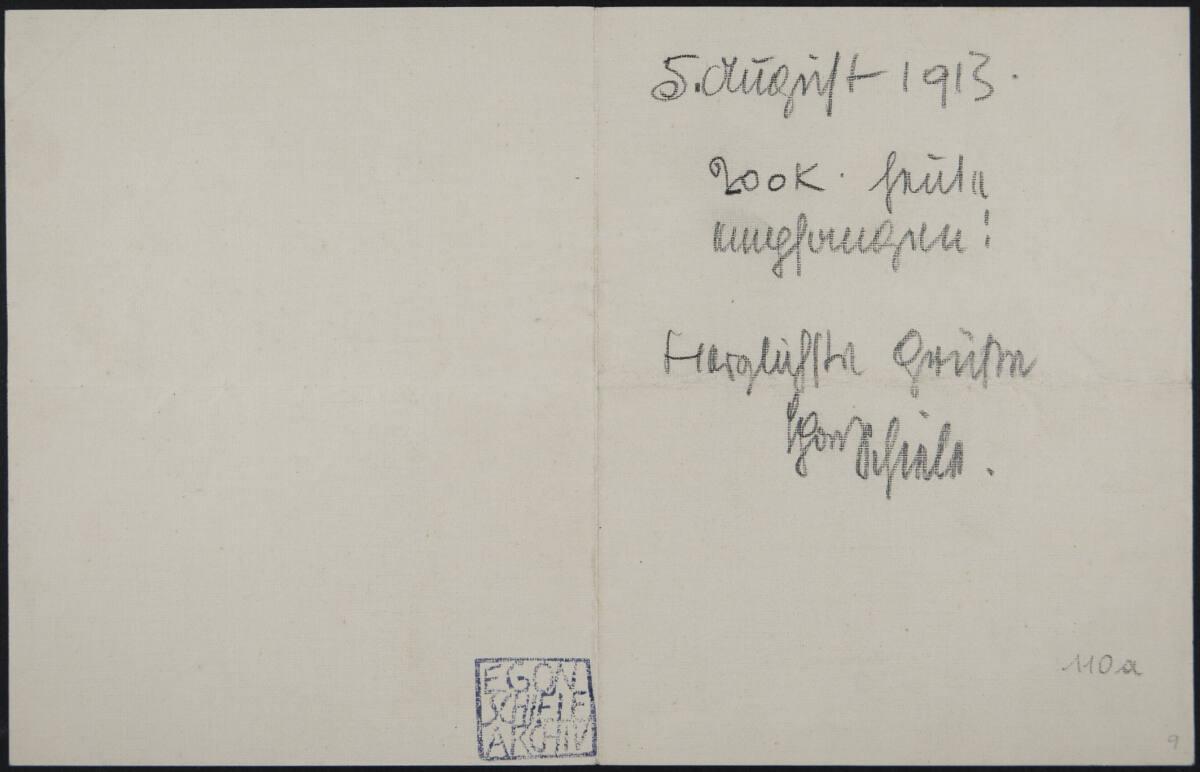 5. August 1913.
200 K. heute
empfangen!
Herzlichste Grüße
Egon Schiele.
EGON
SCHIELE
ARCHIV
110a
9